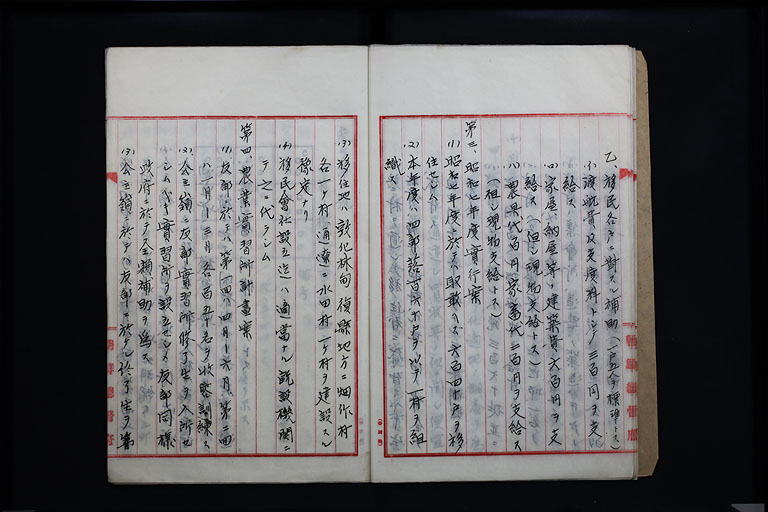 乙、移民各戸ニ對スル補助(一戸五人ヲ標準トス)
(イ)渡航費及支度料トシテ三百円ヲ支
給ス
(ロ)家屋、納屋等ノ建築費六百円ヲ支
給ス(但シ現物支給トス)
(ハ)農具代百円、家畜代二百円ヲ支給ス
(但シ現物支給トス)
第三、昭和七年度實行案
(1)昭和七年度ニ於テハ取敢ヘス六百四十戸ヲ移
住セシム
(2)本年度ハ四部落百六十戸ヲ以テ一村ヲ組
織ス
(3)移住地ハ敦化、林甸、復縣地方ニ畑作村
各一ヶ村、通遼ニ水田村一ヶ村ヲ建設スル
豫定ナリ
(4)移民會社設立迄ハ適當ナル既設機関ニ
テ之ニ代ラシム
第四、農業實習所計画案
(1)友部ニ於テハ第一回ハ四月ー六月、第二回
ハ一月ー三月各百五十名ヲ收容訓練ス
(2)公主嶺ニ友部實習所修了生ヲ入所セ
シムル實習所ヲ設立セシメ友部同様
政府ニ於テ全額補助ヲ為ス
(3)公主嶺ニ於テハ友部ニ於ケル修了生ヲ第